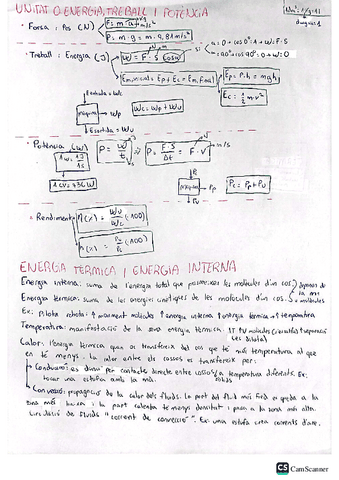 UNITAT 0 ENERGIA, TREBALL I POTÈNCIA
• Força i Pes (N)
F = m · a
P = m · g = m · 9,81 m/s²
• Treball i Energia (J)
W = F · S · cosα
α = 0 → cos 0° = 1 → W = F · S
α = 90° → cos 90° = 0 → W = 0
Em,inicial = Ep + Ec = Em,final
Ep = P · h = mgh
Ec = 1/2 m v²
Entrada = Wc
màquina → Wp
Wc = Wp + Wu
Sortida = Wu
• Potència (W)
1W = 1J/1s
P = W/t
P = F · S/Δt = F · v
m/s
1 CV = 736 W
màquina → Pp
Pc = Pp + Pu
Pu
• Rendiment
η(%) = Wu/Wc (·100)
η(%) = Pu/Pc (·100)
ENERGIA TÈRMICA I ENERGIA INTERNA
Energia interna: suma de l'energia total que posseeixen les molècules d'un cos.
Energia tèrmica: suma de les energies cinètiques de les molècules d'un cos.
Ex: Pilota rebota: ↑ moviment molècules ↑ energia interna ↑ energia tèrmica → ↑ temperatura
Temperatura: manifestació de la seva energia tèrmica.
Calor: l'energia tèrmica que es transfereix del cos que té més temperatura al que
en té menys. La calor entre els cossos es transfereix per:
↳ Conducció: es dona per contacte directe entre cossos a temperatura diferents. Ex:
tocar una estufa amb la mà.
↳ Convecció: propagació de la calor dels fluids. La part del fluid més freda es queda a la
zona més baixa i la part calenta té menys densitat i puja a la zona més alta.
circulació de fluids "corrent de convecció". Ex: Una estufa crea corrents d'aire.
CS CamScanner